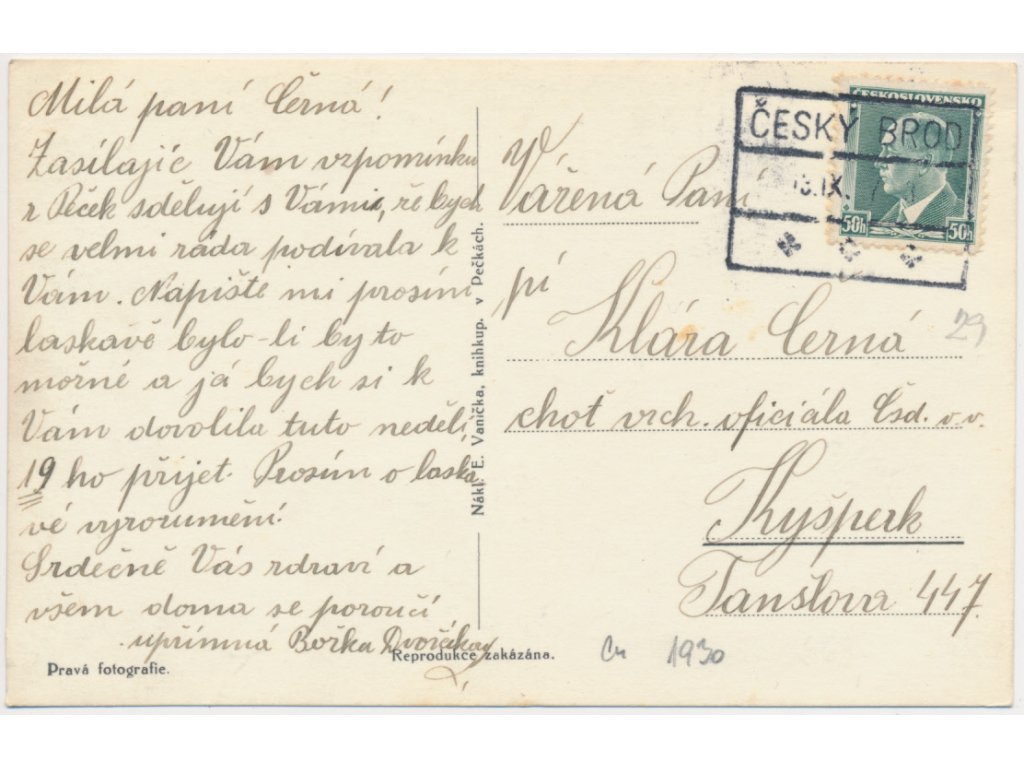 Milá paní Černá!
Zasílajíc Vám vzpomínku
z Peček sděluji s Vámi, že bych
se velmi ráda podívala k
Vám. Napiště mi prosím
laskavě bylo-li by to
možné a já bych si k
Vám dovolila tuto neděli
19 ho přijet. Prosím o laska
vé vyrozumění.
Srdečně Vás zdraví a
všem doma se poroučí
upřímná Božka Dvořáková
Pravá fotografie.
Nákl. E. Vanička, knihkup. v Pečkách.
Reprodukce zakázána.
ČESKÝ BROD
IX.
ČESKOSLOVENSKO
50h 50h
Vážená Paní
pí
Klára Černá
29
choť vrch. oficiála Čsd. v.v.
Kyšperk
Tanslova 447.
1930